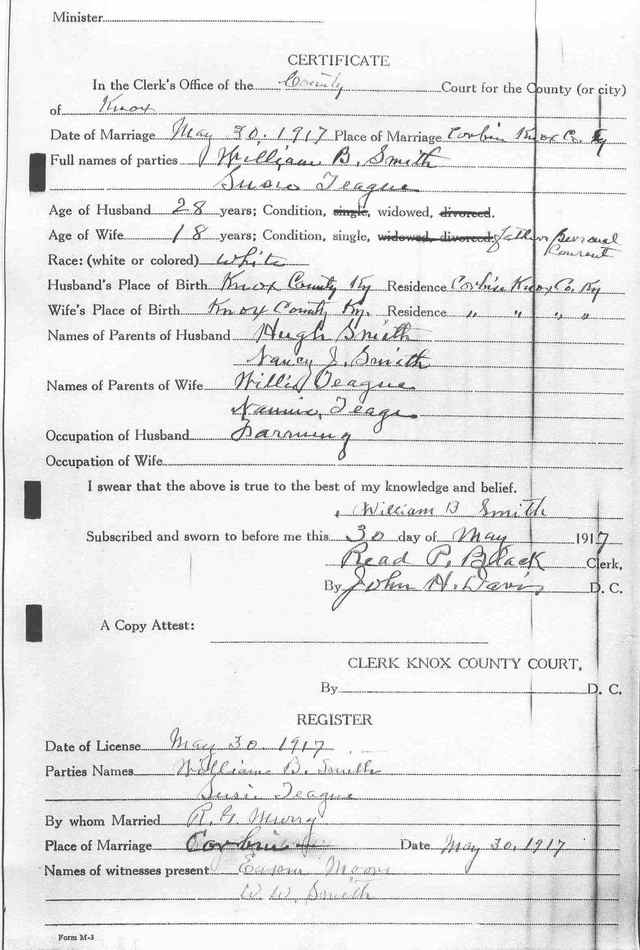 Minister
CERTIFICATE
In the Clerk's Office of the County Court for the County (or city)
of Knox
Date of Marriage May 30. 1917 Place of Marriage Corbin Knox Co. Ky
Full names of parties William B. Smith
Susie Teague
Age of Husband 28 years; Condition, single, widowed, divorced.
Age of Wife 18 years; Condition, single, widowed, divorced. father
Consent
Race: (white or colored) White
Husband's Place of Birth Knox County Ky Residence Corbin Knox Co. Ky
Wife's Place of Birth Knox County Ky. Residence " " " "
Names of Parents of Husband Hugh Smith
Nancy J. Smith
Names of Parents of Wife Willis Teague
Nannie Teage
Occupation of Husband Farming
Occupation of Wife
I swear that the above is true to the best of my knowledge and belief.
William B Smith
Subscribed and sworn to before me this 30 day of May 1917
Read P. Black Clerk,
By John H. Davis D. C.
A Copy Attest:
CLERK KNOX COUNTY COURT,
By D. C.
REGISTER
Date of License May 30. 1917
Parties Names William B. Smith
Susie Teague
By whom Married R. G. Murry
Place of Marriage Corbin Ky Date May 30, 1917
Names of witnesses present Moore
W. W. Smith
Form M-3